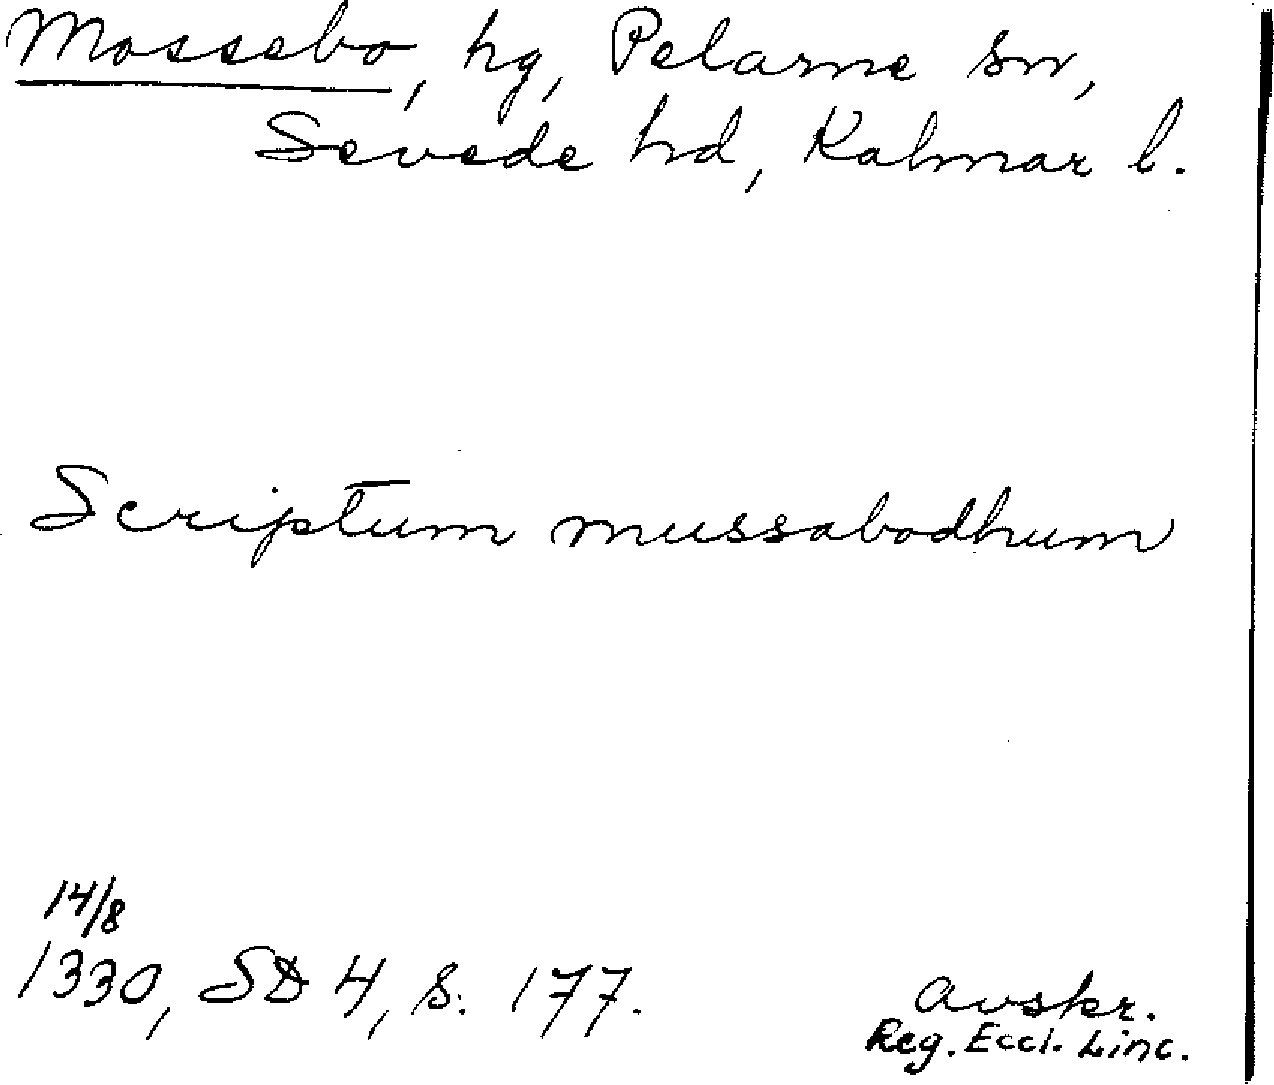 Mossebo, hg, Pelarne sn,
Sevede hd, Kalmar l.
Scriptum mussabodhum
14/8
1330, SD 4, s. 177.
Avskr.
Reg. Eccl. Linc.